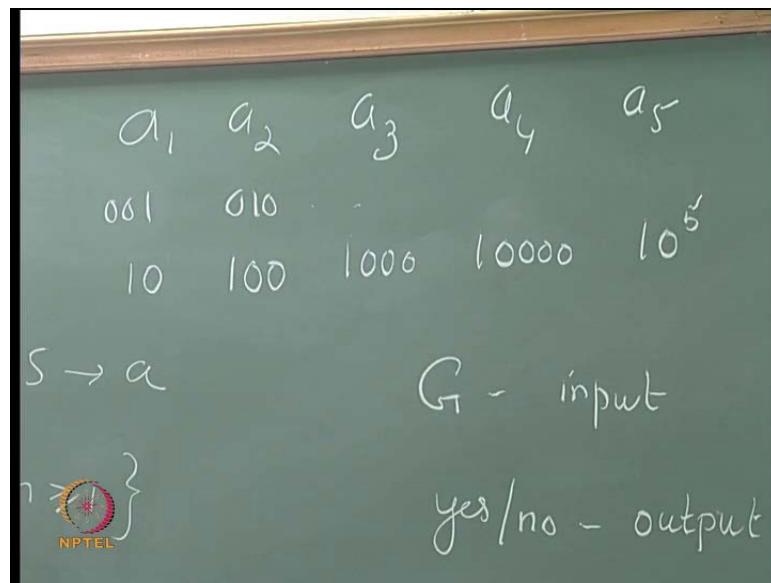 a₁ a₂ a₃ a₄ a₅
001 010 . .
10 100 1000 10000 10⁵
S → a
G - input
n ≥ 1 }
yes/no - output
NPTEL